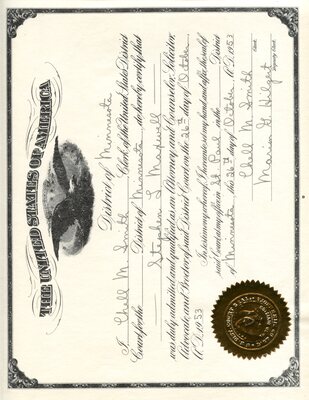 THE UNITED STATES OF AMERICA
District of Minnesota
I, Chell M. Smith, Clerk of the United States District
Court for the District of Minnesota, do hereby certify that
Stephen L. Maxwell
was duly admitted and qualified as an Attorney and Counselor, Solicitor
Advocate and Proctor of said District Court on the 26th day of October,
A.D. 1953
In testimony whereof I hereunto set my hand and affix the seal of
said Court at my office in St Paul in the District
of Minnesota this 26th day of October A.D. 1953
Chell M. Smith
Clerk.
Marian G. Hilgert
Deputy Clerk.